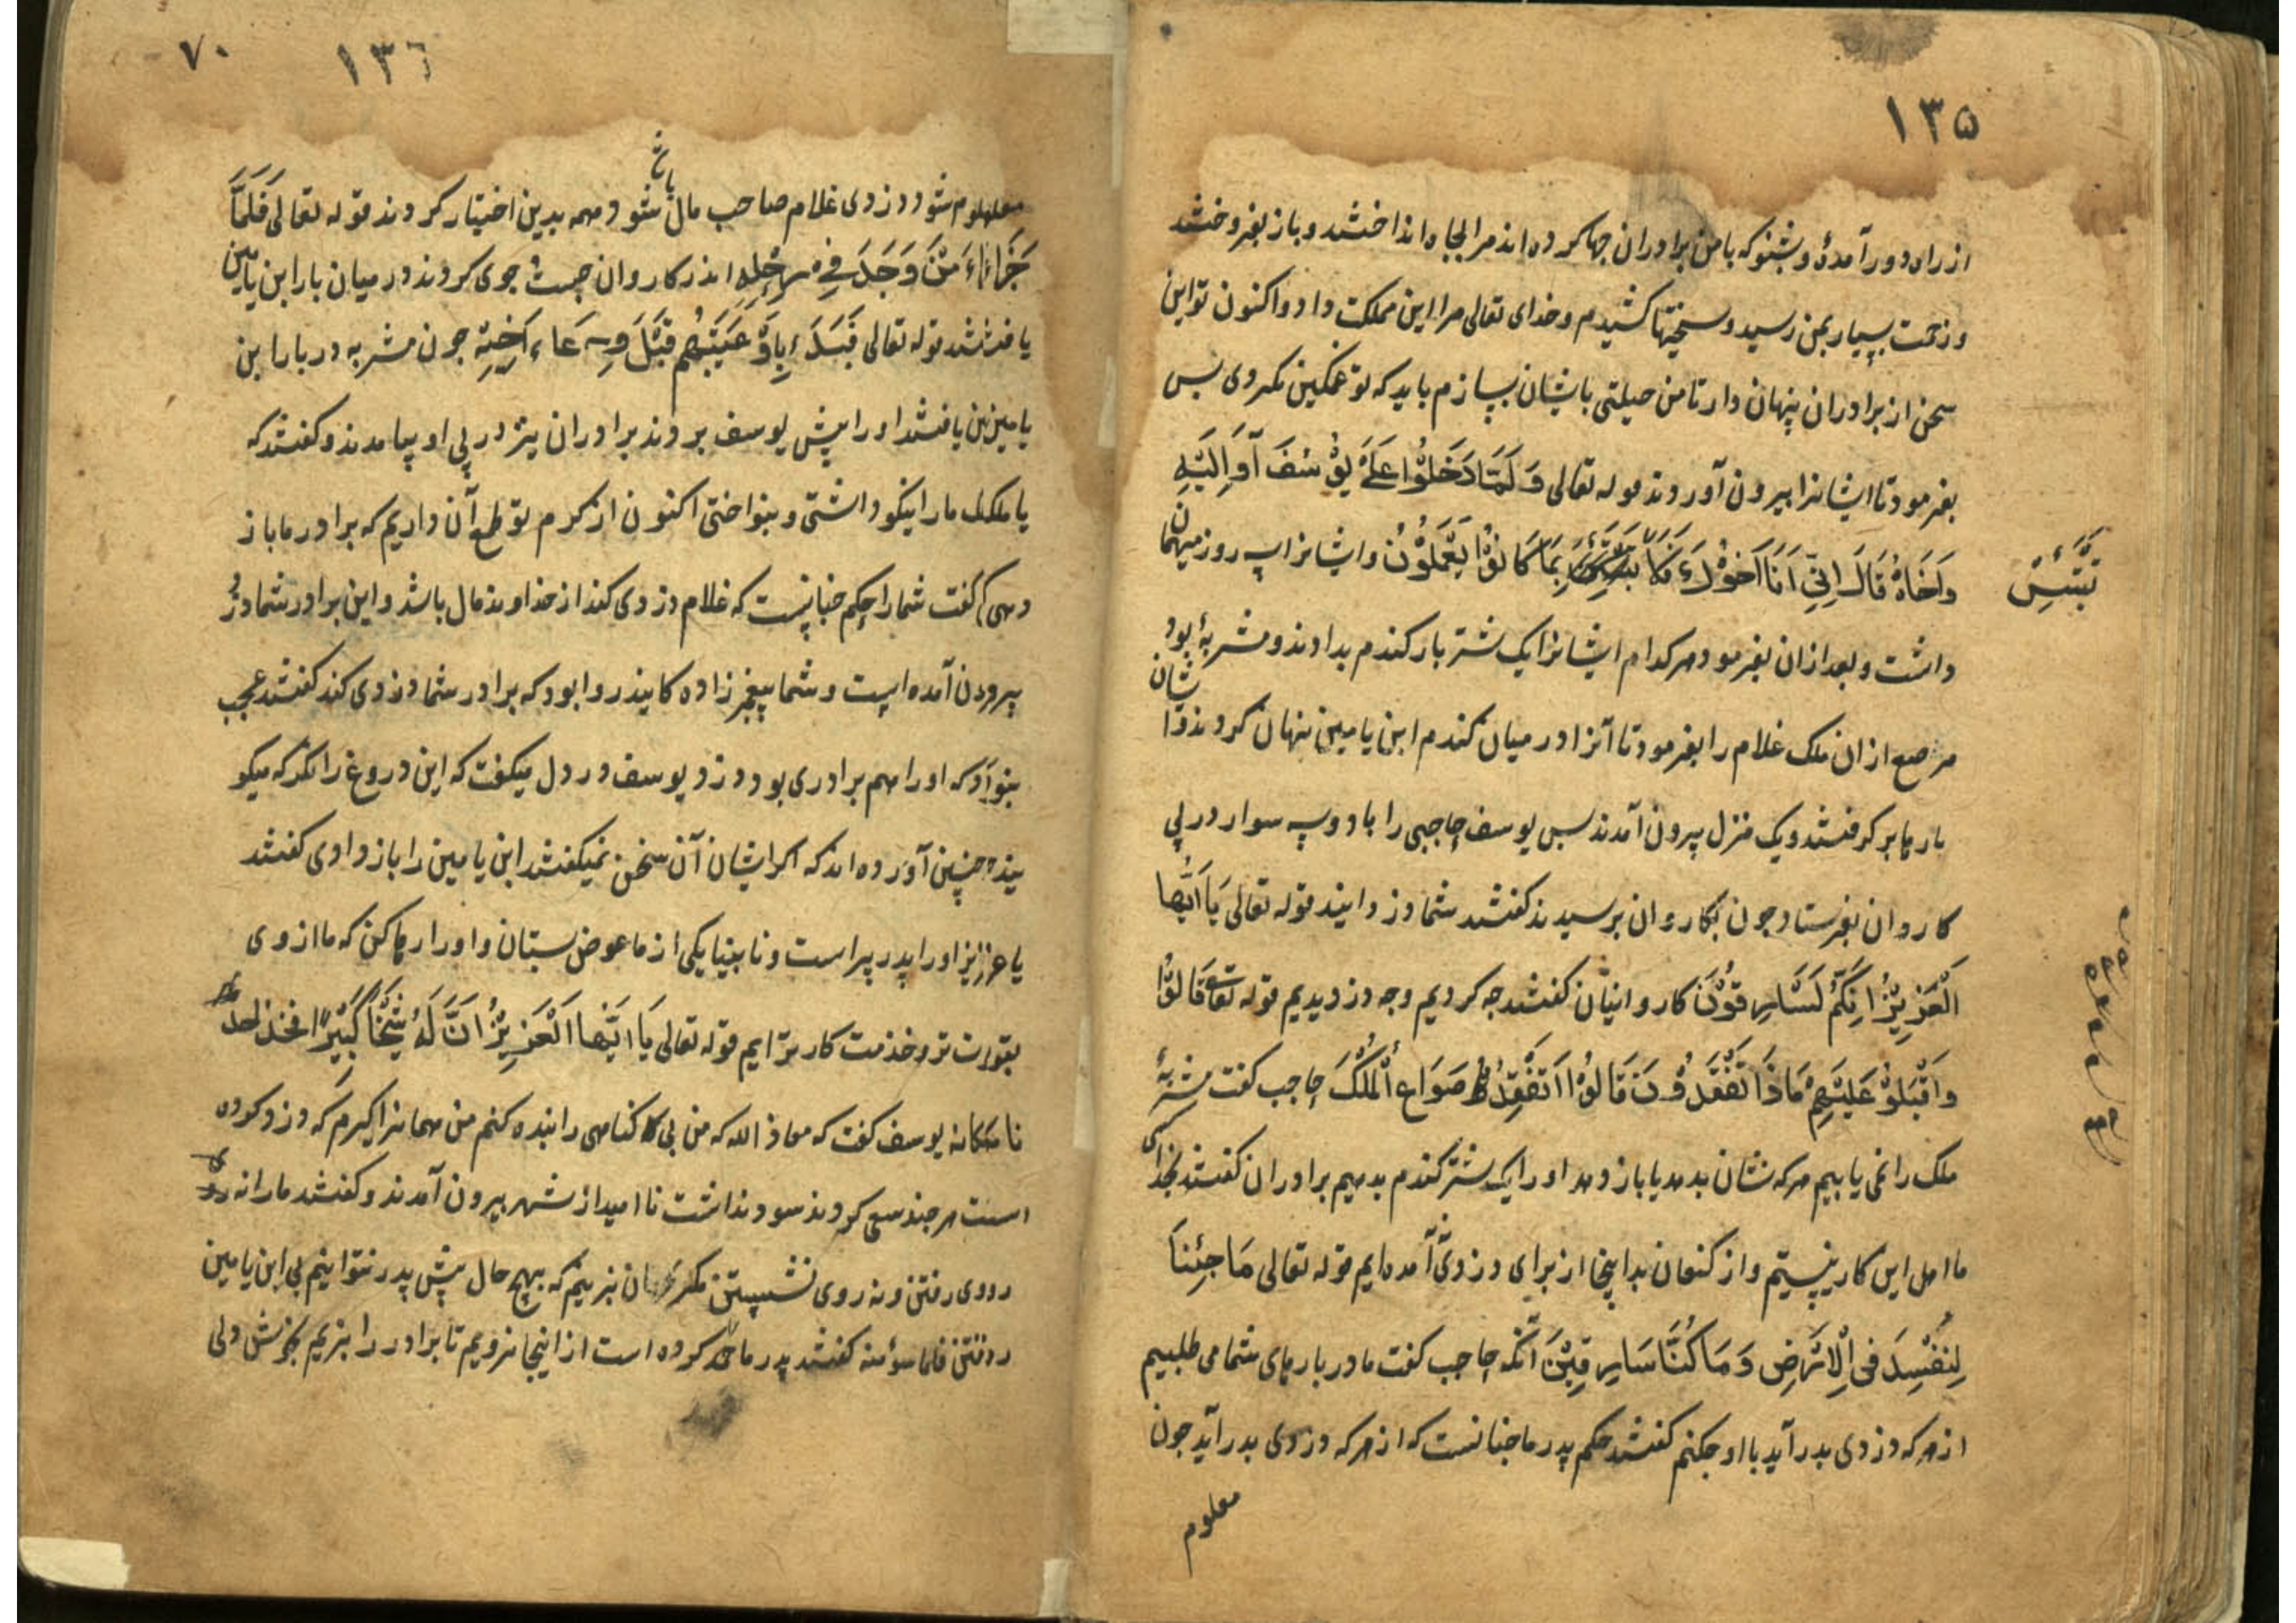 ۱۳۵
از راه دور آمدۀ و بشنو که با من برادران جها کرده اند مرا بچاه انداختند و باز بفروختند
و زحمت بسیار بمن رسید و سختیها کشیدم و خدای تعالی مرا این مملکت داد و اکنون تو این
سخن از برادران پنهان دار تا من حیلتی با یشان بسازم باید که تو غمکین نکردی بس
بفرمود تا ایشانرا بیرون آوردند قوله تعالی وَلَمَّا دَخَلُوْا عَلَےٰ يُوْسُفَ آوٰى اِلَيْهِ
وَاَخَاهُ قَالَ اِنّیِ اَنَا اَخُوْكَ فَلَا بِمَا كَانُوْا يَعْمَلُوْنَ و ایشانرا سه روز میهمان
تَبْتَئِسْ
داشت و بعد ازان بفرمود هر کدام ایشانرا یک شتر بار کندم بدادند و مشربۀ بود
مرصع ازان ملک غلام را بفرمود تا آنرا در میان کندم ابن یامین پنهان کردند و ایشان
بارها بر کرفتند و یک منزل بیرون آمدند بس یوسف حاجبی را با دویسه سوار در پی
کاروان بفرستاد جون بکاروان برسیدند کفتند شما دزدانید قوله تعالی يَا اَيُّهَا
الْعَزِيْزُ اِنَّكُمْ لَسَارِقُوْنَ کاروانیان کفتند جه کردیم و جه دزدیدیم قوله تعالے قَالُوْا
وَاَقْبَلُوْا عَلَيْهِمْ مَاذَا تَفْقِدُوْنَ قَالُوْا نَفْقِدُ صُوَاعَ الْمَلِكَ حاجب کفت مشربۀ
ملک را نمی یابیم هر که نشان بدهد یا باز دهد او را یک شتر کندم بدهیم برادران کفتند بخدای
ما اهل این کار نیستیم و از کنعان بدینجا از برای دزدی آمده ایم قوله تعالی مَا جِئْنَا
لِنُفْسِدَ فِى الْاَرْضِ وَ مَا كُنَّا سَارِقِيْنَ آنکه حاجب کفت ما در بارهای شما می طلبیم
از هر که دزدی بدر آید با او جکنم کفتند حکم پدر ما جنانست که از هر که دزدی بدر آید جون
معلوم
۱۳٦
۷۰
معلوم شود دزدی غلام صاحب مال باشد و همه بدین اختیار کردند قوله تعالی فَلَمَّا
جَزَاءُ مَنْ وَجَدَ فِے رَحْلِهِ اندر کاروان جست جوی کردند در میان بار ابن یامین
یافتند قوله تعالی فَبَدَءَ بِاَوْعِيَتِهِمْ قَبْلَ وِعَاءِ اَخِيْهِ جون مشربه در بار ابن
یامین یافتند او را پیش یوسف بردند برادران نیز در پی او بیامدند و کفتند که
یا ملک ما را نیکو داشتی و بنواختی اکنون از کرم تو طمع آن داریم که برادر ما باز
دهی کفت شما را حکم جنانست که غلام دزدی کند از خداوند مال باشد و این برادر شما دزد
بیرون آمده است و شما پیغمبرزاده کانید روا بود که برادر شما دزدی کند کفتند عجب
نبود که او را هم برادری بود دزد یوسف در دل میکفت که این دروغ را نکر که میکو
یند چنین آورده اند که اکر ایشان آن سخن نمیکفتند ابن یامین را باز دادی کفتند
یا عزیز او را پدر پیر است و نابینا یکی از ما عوض بستان و او را رها کن که ما از وی
بقوت تر و خدمت کارتر ایم قوله تعالی يَا اَيُّهَا الْعَزِيْزُ اِنَّ لَهُ شَيْخًا كَبِيْرًا فخذ احد
نا مکانه یوسف کفت که معاذ الله که من بی کناهی را بنده کنم من همانرا کیرم که دزد کرده
است هر جند سعی کردند سود نداشت نا امید از شهر بیرون آمدند و کفتند ما را نه روی
روی رفتن و نه روی نشستن بهیج حال پیش پدر نتوانیم بی ابن یامین
کفتند پدر ما کرده است از اینجا نرویم تا برادر را نبریم